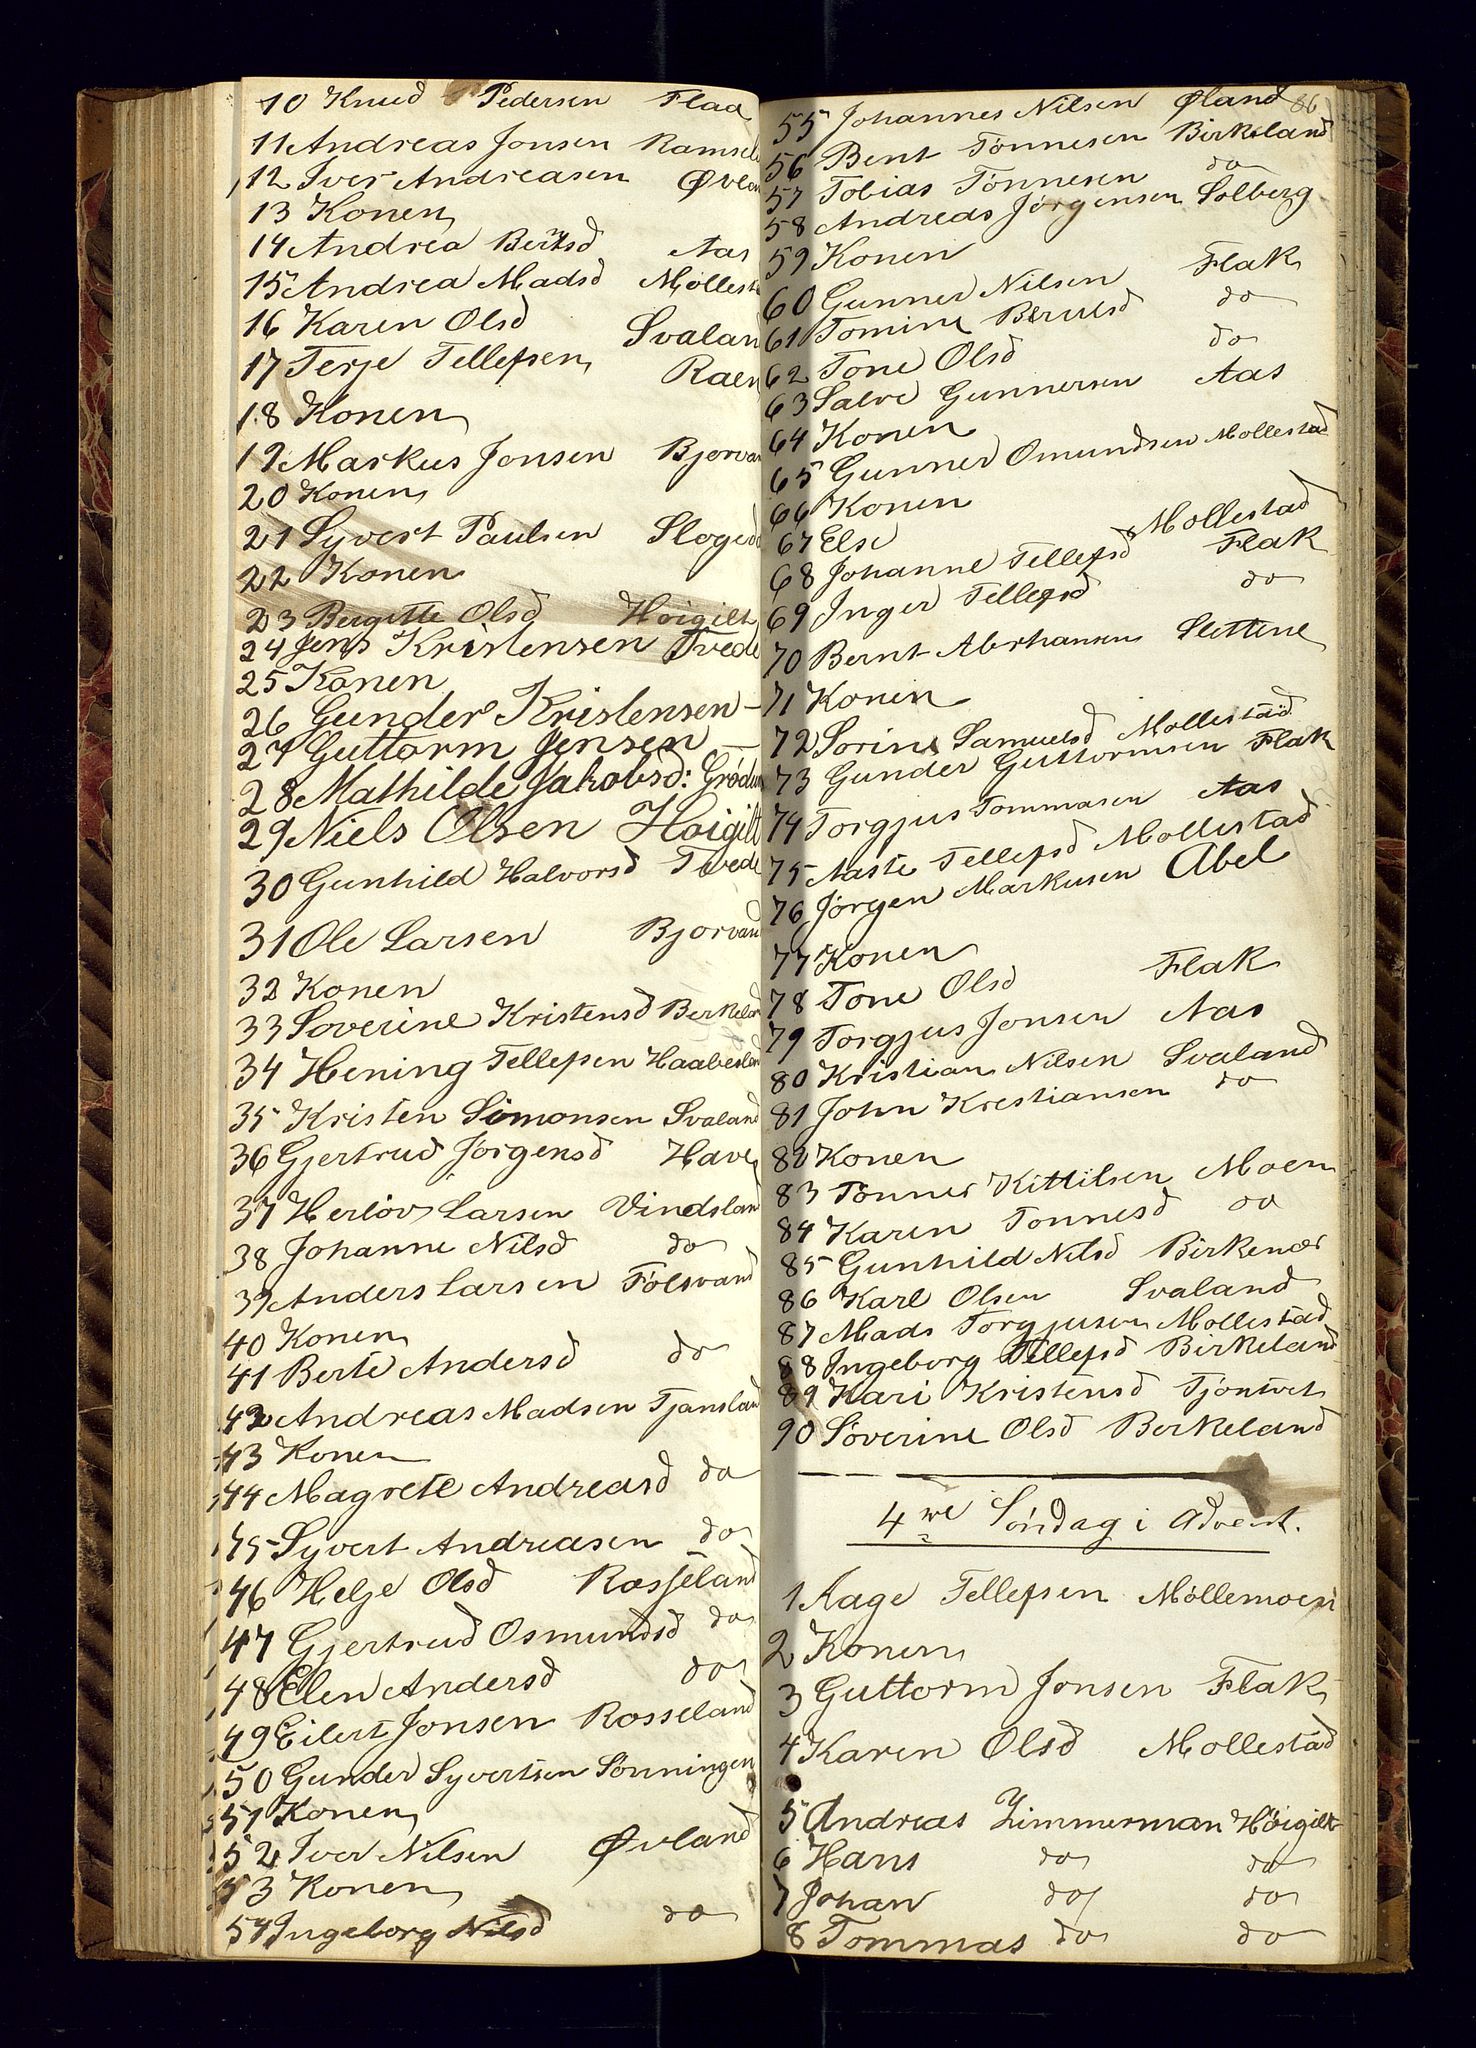 10 Knud Pedersen Flaa
11 Andreas Jonsen
12 Iver Andreasen
13 Konen
14 Andrea Aas
15 Andrea Madsd
16 Karen Olsd Svaland
17 Terje Tellefsen Raen
18 Konen
19 Markus Jonsen
20 Konen
21 Syvert Paulsen
22 Konen
23 Bergitte Olsd Hoigilt
24 Jens Kristensen Tvede
25 Konen
26 Gunder Kristensen —
27 Guttorm Jensen —
28 Mathilde Jakobsd:
29 Niels Olsen Hoigilt
30 Gunhild Halvorsd Tvede
31 Ole Larsen Bjorvand
32 Konen
33 Soverine Kristensd
34 Hening Tellefsen
35 Kristen Simonsen Svaland
36 Gjertrud Jörgensd Have
37 Herlov Larsen Vindsland
38 Johanne Nilsd do
39 Anders Larsen Fölsvand
40 Konen
41 Berte Andersd do
42 Andreas Madsen Tjansland
43 Konen
44 Magrete Andreasd do
45 Syvert Andreasen do
46 Helje Olsd Rosseland
47 Gjertrud Osmundsd do
48 Elen Andersd do
49 Eilert Jonsen Rosseland
50 Gunder Syvertsen Sönningen
51 Konen
52 Iver Nilsen Øvland
53 Konen
54 Ingeborg Nilsd do
86
55 Johannes Nilsen Øland
56 Bent Tönnesen Birkeland
57 Tobias Tönnesen do
58 Andreas Jörgensen Solberg
59 Konen
60 Gunner Nilsen Flak
61 Tomine do
62 Tone Olsd do
63 Salve Gunnersen Aas
64 Konen
65 Gunner Omundsen Mollestad
66 Konen
67 Else Mollestad
68 Johanne Tellefsd Flak
69 Inger Tellefsd do
70 Bernt Aberhansen Slettene
71 Konen
72 Sorine Samuelsd Mollestad
73 Gunder Guttormsen Flak
74 Torgjus Tommasen Aas
75 Aaste Tellefsd Mollestad
76 Jörgen Markusen Abel
77 Konen
78 Tone Olsd Flak
79 Torgjus Jonsen Aas
80 Kristian Nilsen Svaland
81 John Krestiansen do
82 Konen
83 Tönnes Kittilsen Moen
84 Karen Tonnesd do
85 Gunhild Nilsd Birkenes
86 Karl Olsen Svaland
87 Mads Torgjusen Mollestad
88 Ingeborg Tellefsd Birkeland
89 Kari Kristensd
90 Söverine Olsd Berkeland
4 Söndag i Advent.
1 Aage Tellefsen Möllemoen
2 Konen
3 Guttorm Jonsen Flak
4 Karen Olsd Mollestad
5 Andreas Zimmerman Höigilt
6 Hans do do
7 Johan do do
8 Tommas do do